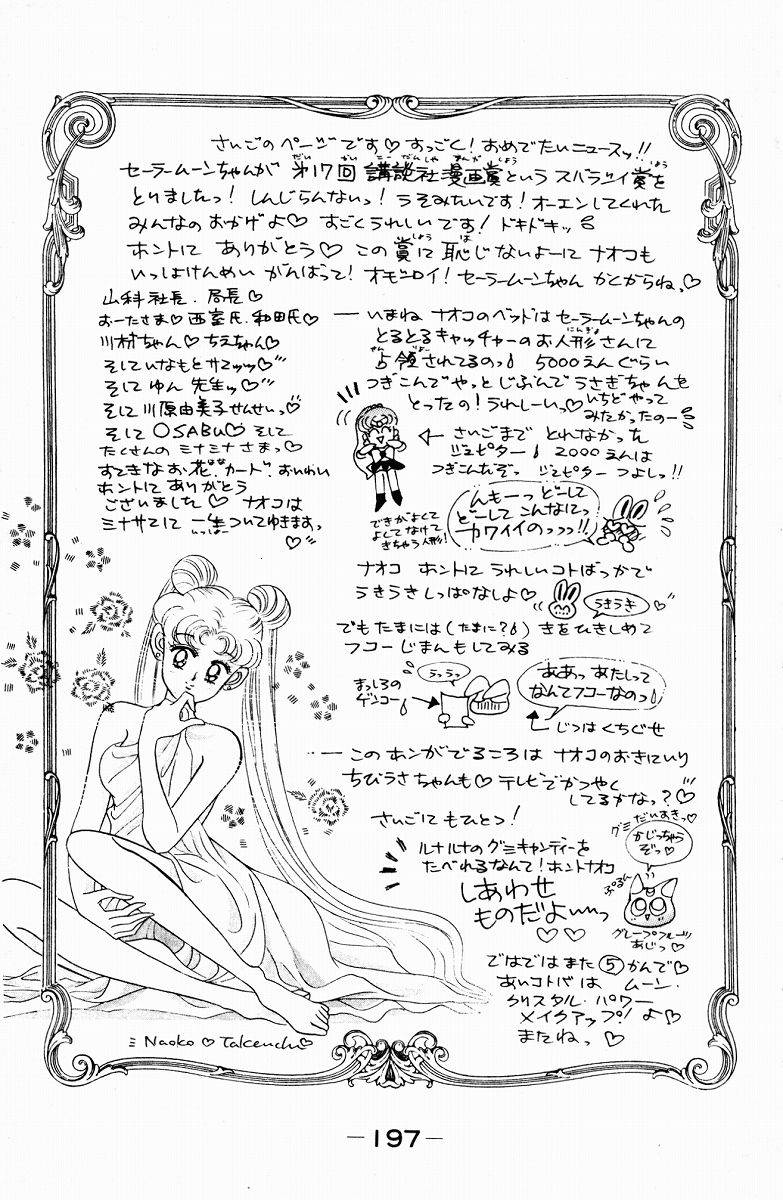 さいごのページです♡すっごく!おめでたいニュースッ!!
セーラームーンちゃんが 第17回 講談社漫画賞という スバラシイ賞を
とりましたっ! しんじらんないっ! うそみたいです! オーエンしてくれた
みんなのおかげよ♡ すごくうれしいです! ドキドキッ
ホントに ありがとう♡ この賞に 恥じないよーに ナオコも
いっしょけんめい がんばって! オモシロイ! セーラームーンちゃん かくからねっ♡
山科社長. 局長♡
おーたさま♡西室氏.和田氏♡
川村ちゃん♡ちえちゃん♡
そして いなもとサマッッ♡
そして ゆん 先生ッ♡
そして 川原由美子せんせいっ♡
そして OSABU♡ そして
たくさんの ミナミナさまっ♡
すてきなお花.カード.おいわい
ホントに ありがとう
ございました♡ ナオコは
ミナサマに 一生ついてゆきますっ
♡
― いまね ナオコのベッドは セーラームーンちゃんの
とるとるキャッチャーのお人形さんに
占領されてるのっ 5000えんぐらい
つぎこんでやっと じぶんで うさぎちゃんを
とったの! うれしーいっ♡ いちど やって
みたかったのー
← さいごまで とれなかった
ジュピター 2000えんは
つぎこんだぞっ ジュピター つよしっ!!
できがよくて
よしてなけて
きちゃう人形!
んもーっ どーして
どーして こんなにっ
カワイイのっっっ!!
ナオコ ホントに うれしいコトばっかで
うきうきしっぱなしよ♡
うきうき
でもたまには(たまに?)きをひきしめて
フコーじまんもしてみる
まっしろの
ゲンコー
うっうっ
ああっ あたしって
なんてフコーなのっ
じつはくちぐせ
― このホンがでるころは ナオコのおきにいり
ちびうさちゃんも♡ テレビでかつやく
してるかなっ?♡
さいごにもひとつ!
ルナルナのグミキャンディーを
たべれるなんて! ホントナオコ
しあわせ
ものだよ〜っ
♡♡
グミ だいすきっ♡
かじっちゃう
ぞっ♡
ぷるん
グレープフルーツ
あじっ♡
ではでは また ⑤かんで♡
あいコトバは ムーン・
クリスタル・パワー
メイクアップ! よ♡
またねっ♡
Naoko♡Takeuchi♡
―197―